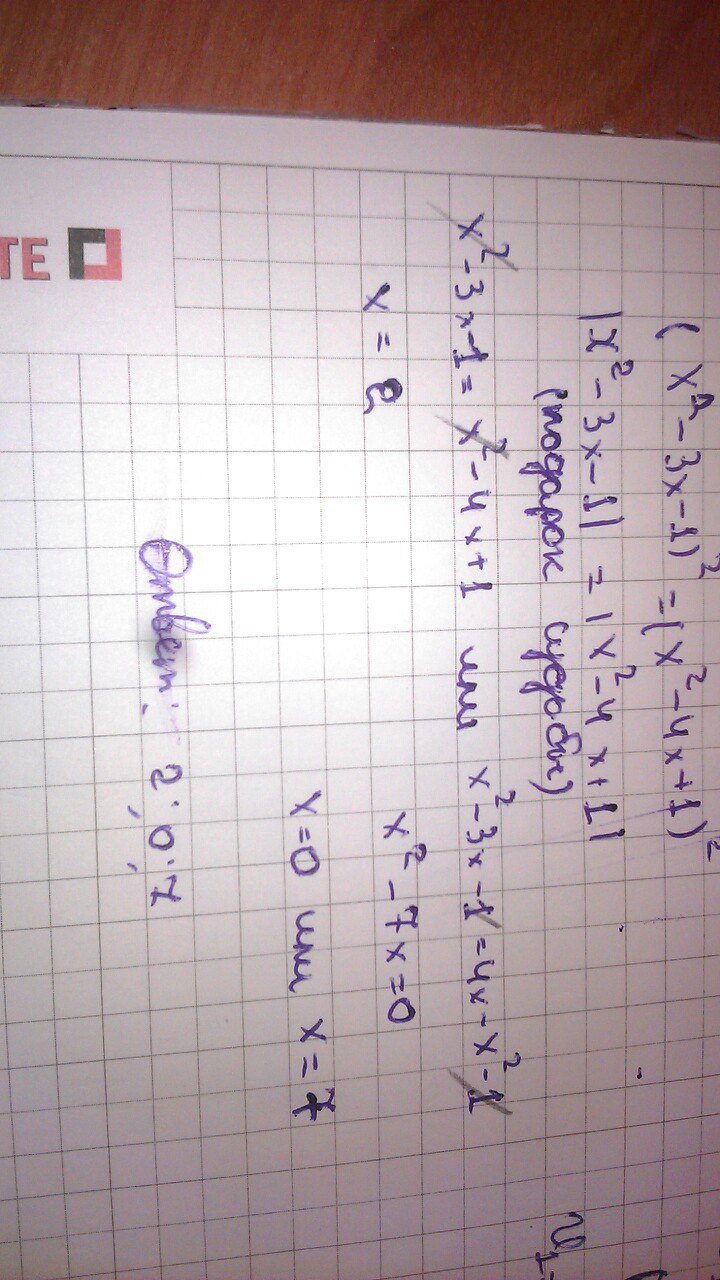 (x² - 3x - 1)² = (x² - 4x + 1)²
|x² - 3x - 1| = |x² - 4x + 1|
(подарок судьбы)
x² - 3x - 1 = x² - 4x + 1 или x² - 3x - 1 = 4x - x² - 1
x = 2 x² - 7x = 0
x = 0 или x = 7
Ответ: 2; 0; 7
TE